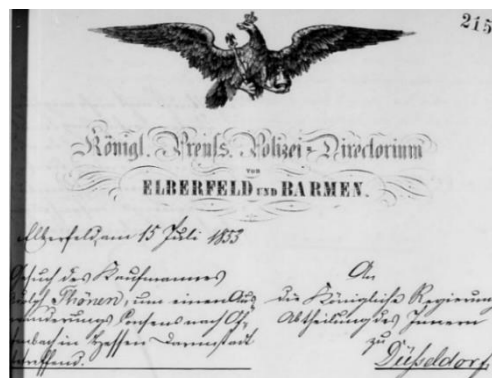 215
Königl. Preuß. Polizei-Directorium
VON
ELBERFELD UND BARMEN.
Elberfeld, am 15 Juli 1853
Gesuch des Kaufmannes
Thönen, um einen Aus
wanderungs Consens nach Of
fenbach in Hessen Darmstadt
betreffend.
An
die Königliche Regierung
Abtheilung des Innern
zu
Düsseldorf